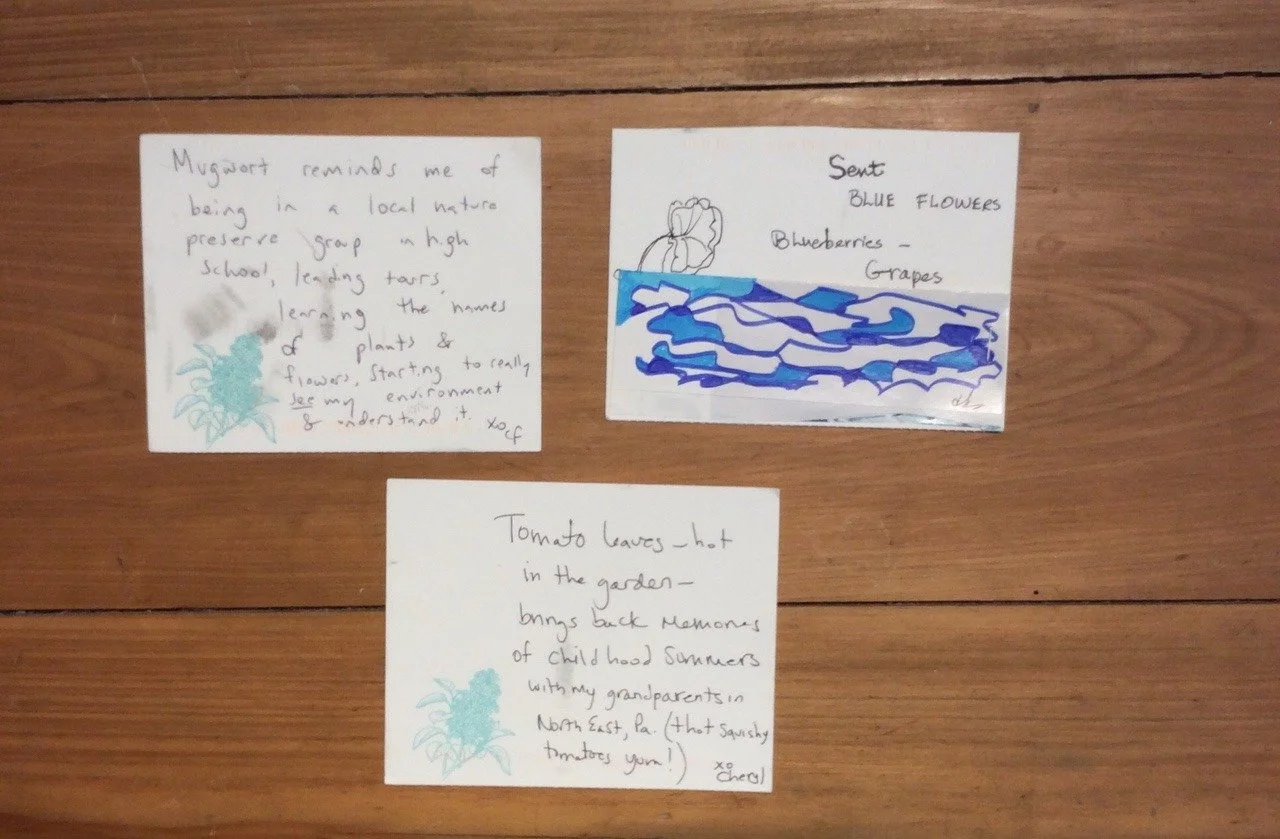 Mugwort reminds me of
being in a local nature
preserve group in high
school, leading tours,
learning the names
of plants &
flowers, starting to really
see my environment
& understand it.
xo cf
Sent
BLUE FLOWERS
Blueberries -
Grapes
Tomato leaves - hot
in the garden -
brings back memories
of childhood summers
with my grandparents in
North East, Pa. (hot squishy
tomatoes yum!)
xo
Cheryl